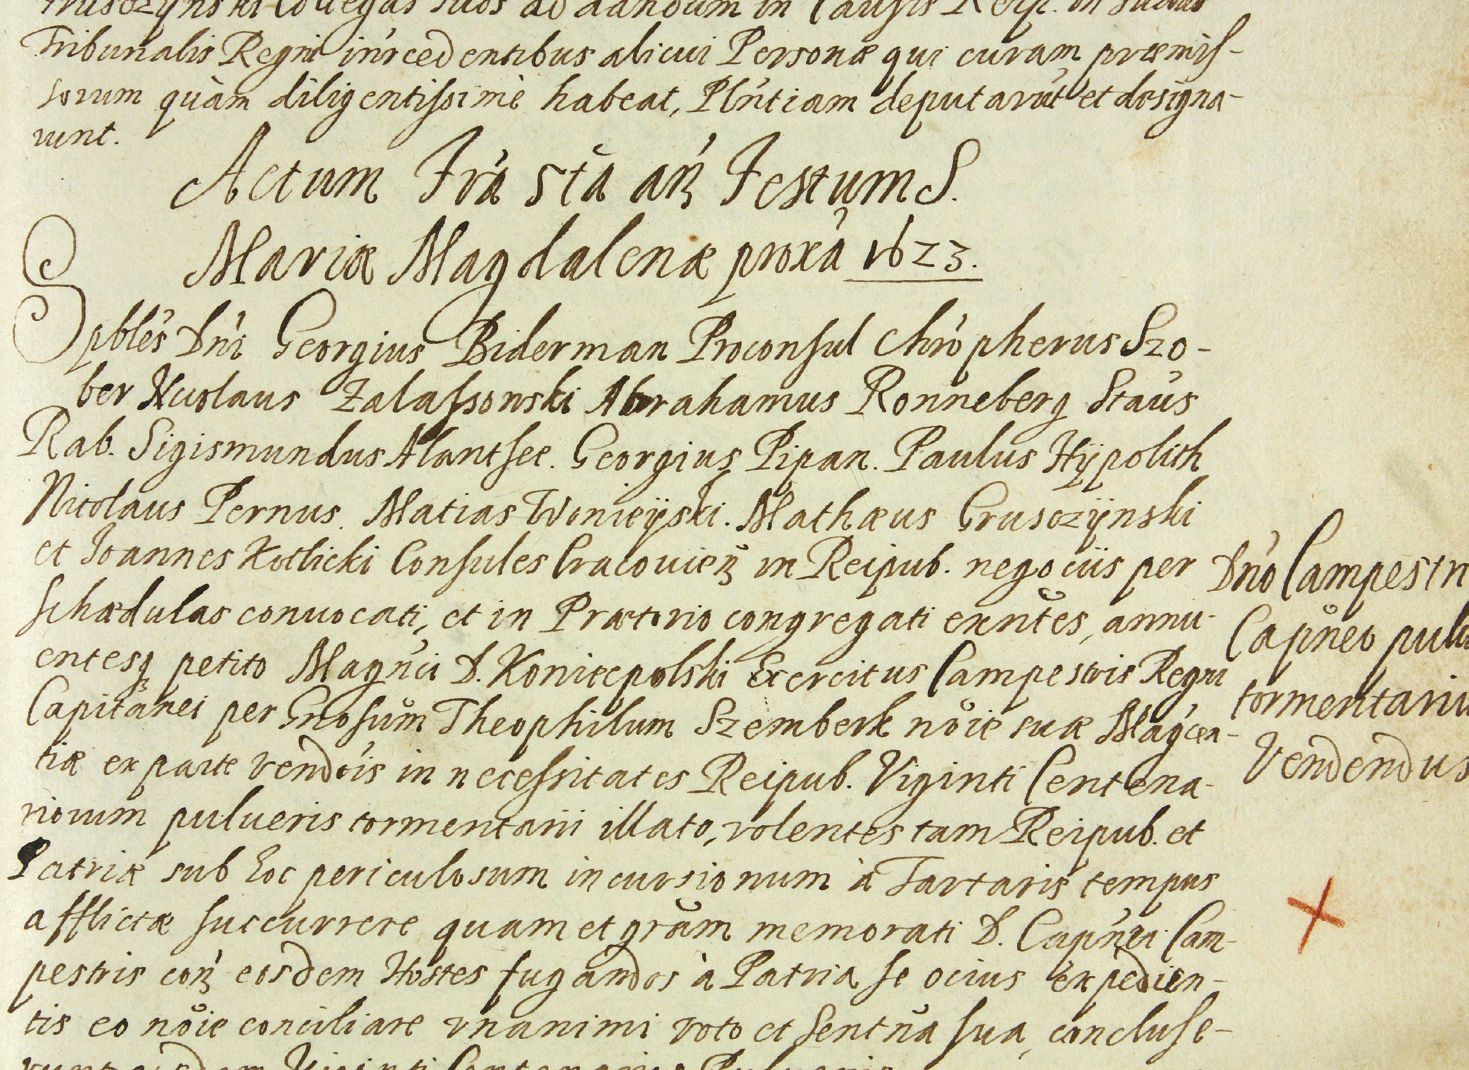 Grusczÿnski Collegas suos ad dandum in Causis Reip. in Iudicio
Tribunalis Regni in'rcedentibus alicui Personæ qui curam præmis-
sorum quàm diligentissimè habeat, Pln'tiam deputarūt et designa-
runt.
Actum Fr'a 5ta añ Festum S.
Mariæ Magdalenæ proxã 1623.
Spbles Dn'i Georgius Biderman Proconsul Chr'opherus Szo-
ber Nicolaus Zalassowski Abrahamus Ronneberg Staus
Rab. Sigismundus Alantsee. Georgius Pipan. Paulus Hÿpolith
Nicolaus Pernus. Matias Wonieÿski. Mathæus Grusczÿnski
et Joannes Kotlicki Consules Cracovieñ in Reipub. negociis per
schædulas convocati, et in Prætorio congregati exn̄tes, annu-
entesq petito Magn'ci D. Koniecpolski Exercitus Campestris Regni
Capitãnei per Gnosum Theophilum Szemberk nõie suæ Mag'cen-
tiæ ex parte vendõis in necessitates Reipub. Viginti Centena-
riorum pulueris tormentarii illato, volentes tam Reipub. et
Patriæ sub hoc periculosum incursionum à Tartaris tempus
afflictæ succurrere quam et grãm memorati D. Capn'ei Cam-
pestris coñ eosdem Hostes fugandos à Patria se ocius expedien-
tis eo nõie conciliare vnanimi voto et Sentn̄a sua, concluse-
runt eisdem Viginti Centenarios Pulueris
Dn'o Campestri
Capn̄eo pulu
tormentariu
Vendendus